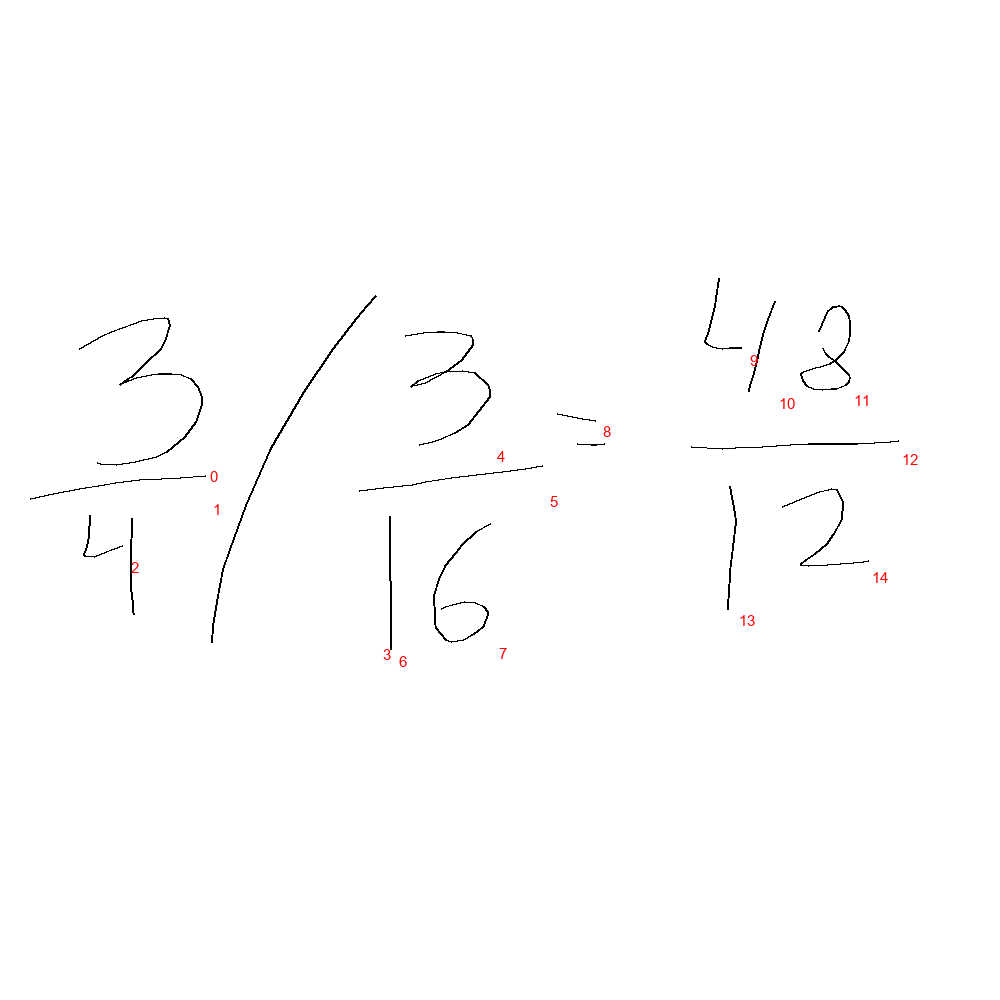 3 / 3 = 48
4 16 12
0 1 2 3 4 5 6 7 8 9 10 11 12 13 14